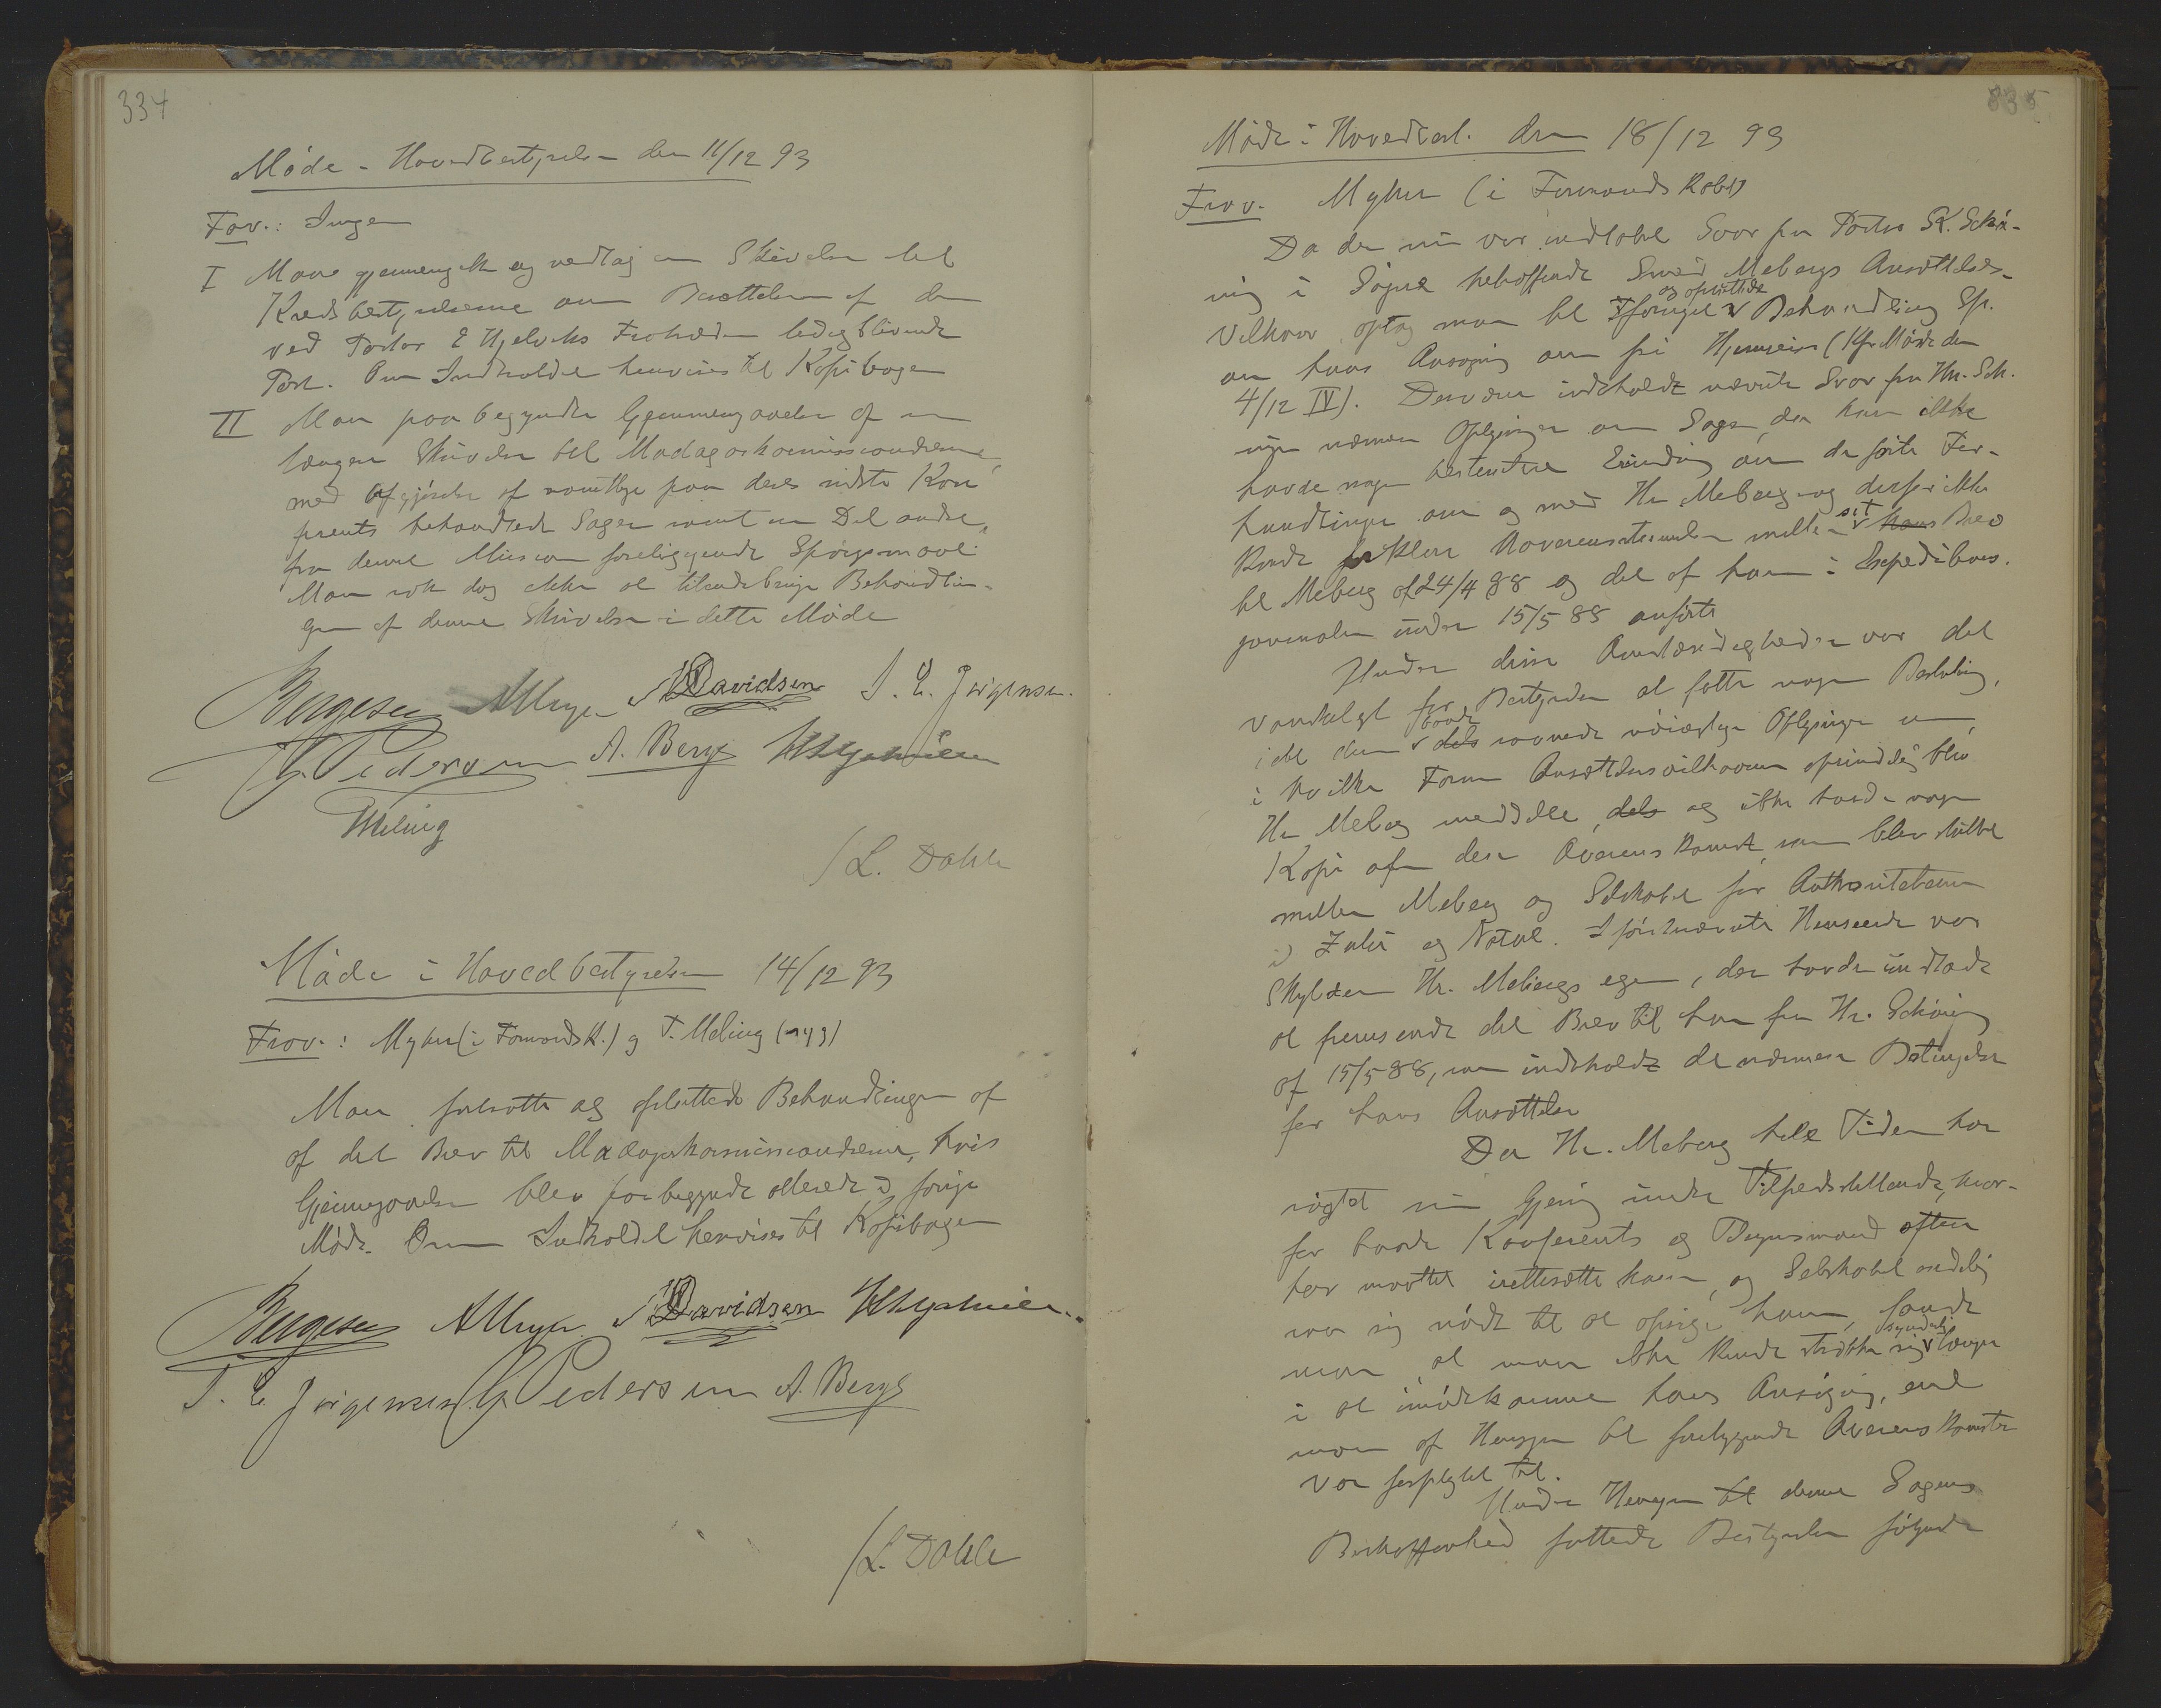 334
Møde i Hovedbestyrelsen den 11/12 93
Frav.: Ingen
I Man gjennemgik og vedtog en Skrivelse til
Kredsbestyrelserne om Besættelsen af den
ved Pastor E Hjelviks Fratræden ledigblivende
Post. Om Indholdet henvises til Kopibogen
II Man paabegyndte Gjennemgaaelsen af en
længere Skrivelse til Madagaskarmissionærerne,
med Afgjørelse af samtlige paa deres sidste Kon
ferents behandlede Sager samt en Del andre,
fra denne Mission foreliggende Spørgsmaal.
Man rak dog ikke at tilendebringe Behandlin-
gen af denne Skrivelse i dette Møde
Bergesen AMyhre NDavidsen T. E. Jørgensen.
G. Pedersen A. Berg
TMeling
/L. Dahle
Møde i Hovedbestyrelsen 14/12 93
Frav.: Myhre (i Formandsk.) og T. Meling (syg)
Man fortsatte og afsluttede Behandlingen af
af det Brev til Madagaskarmissionærerne, hvis
Gjennemgaaelse blev paabegyndt allerede i forrige
Møde. Om Indholdet henvises til Kopibogen
Bergesen AMyhre NDavidsen
T. E Jørgensen G. Pedersen A. Berg
/L. Dahle
335
Møde i Hovedbest. den 18/12 93
Frav. Myhre (i Formandskabet)
Da der nu var indløbet Svar fra Pastor SK. Schøi-
ning i Søgne betræffende Svend Mebergs Ansættelses-
og opsættede
Vilkaar, optog man til fornyet v Behandling Sp.
om hans Ansøgning om fri Hjemreise (Kfr Møde den
4/12 IV). Desværre indeholdt nævnte Svar fra Hr. Sch.
ingen nærmere Oplysninger om Sagen, da han ikke
havde nogen bestemtere Erindring om de førte For-
handlinger om og med Hr. Meberg og derfor ikke
sit
kunde forklare Uoverensstemmelsen mellem v hans Brev
til Meberg af 24/4 88 og det af ham i Expeditions-
journalen under 15/5 88 anførte
Under disse Omstændigheder var det
vanskeligt for Bestyrelsen at fatte nogen Beslutning,
baade
idet den v dels savnede nøiagtige Oplysninger om,
i hvilken Form Ansættelsesvilkaarene oprindelig blev
Hr Meberg meddelte, dels og ikke havde nogen
Kopi af den Overenskomst, som blev sluttet
mellem Meberg og Selskabet for Anthropitebanen
i Zulu og Natal. I førstnævnte Henseende var
Skylden Hr. Mebergs egen, der havde undladt
at fremsende det Brev til ham fra Hr. Schøning
af 15/5 88, som indeholdt de nærmere Betingelser
for hans Ansættelse
Da Hr. Meberg hele Tiden har
røgtet sin Gjerning mindre Tilfredsstillende, hvor-
for baade Konferents og Tilsynsmand oftere
har maattet irettesætte ham, og Selskabet endelig
saa sig nødt til at opsige ham, fandt
synderlig
man, at man ikke kunde strække sig v længere
i at imødekomme hans Ansøgning, end
man af Hensyn til foreliggende Overenskomster
var forpligtet til.
Under Hensyn til denne Sagens
Beskaffenhed fattede Bestyrelsen følgende